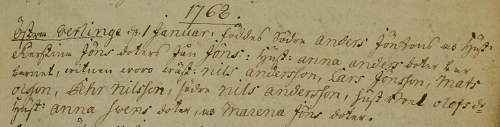 1762
Östra Verlinge d. 1 Januar: föddes Södre anders Jönssons us Hust:
Kierstina Jöns doters Son Jöns: Hust: anna anders doter bar
barnet, witnen woroträst: nils andersson, Lars Jönsson, Mats
olsson, Pehr nilsson, södre nils andersson, hust olofs d:
Hust: anna Swens doter, us Marena Jöns doter.